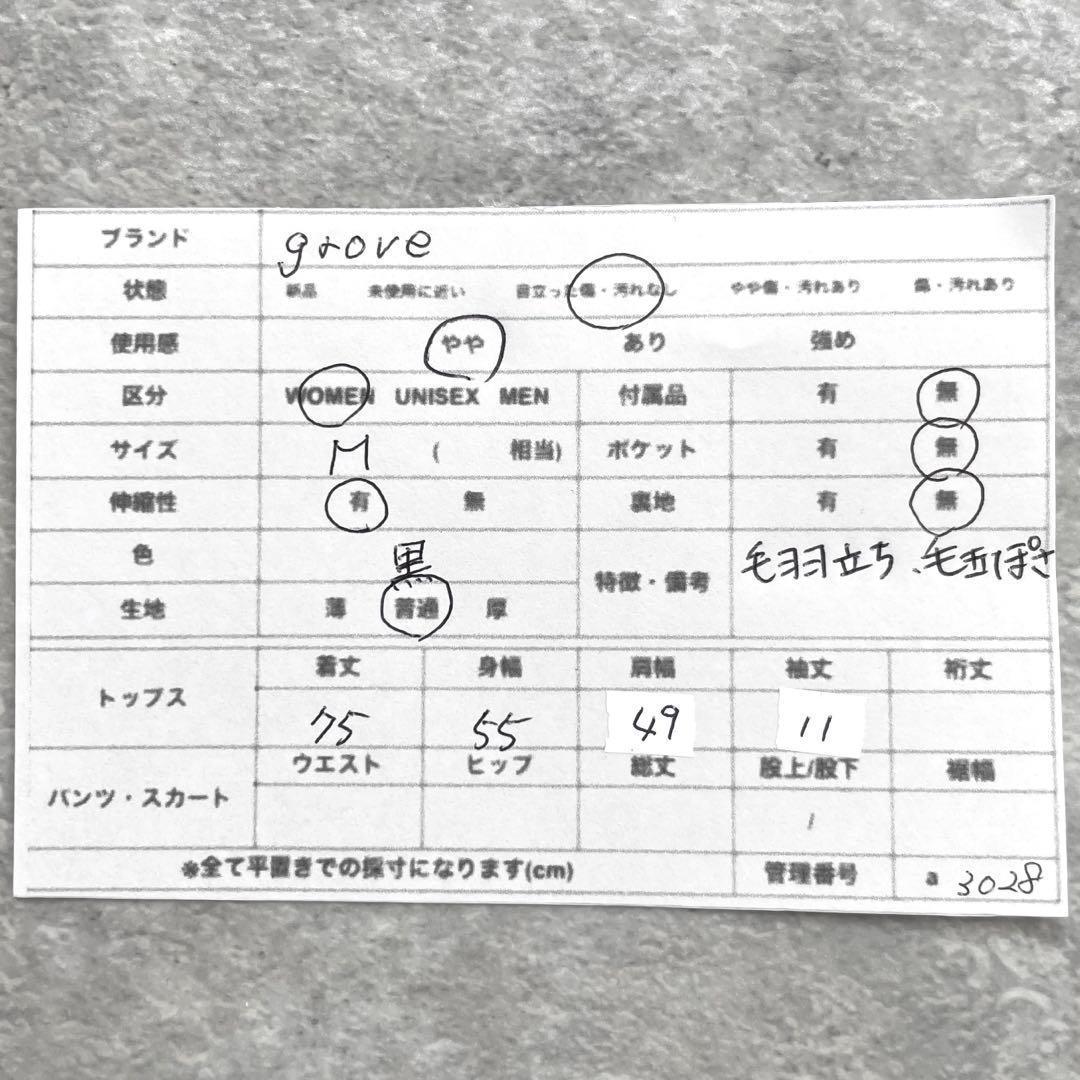 ブランド grove
状態 新品 未使用に近い 目立った傷・汚れなし やや傷・汚れあり 傷・汚れあり
使用感 やや あり 強め
区分 WOMEN UNISEX MEN 付属品 有 無
サイズ M ( 相当) ポケット 有 無
伸縮性 有 無 裏地 有 無
色 黒 特徴・備考 毛羽立ち、毛玉ぽさ
生地 薄 普通 厚
トップス 着丈 身幅 肩幅 袖丈 裄丈
75 55 49 11
パンツ・スカート ウエスト ヒップ 総丈 股上/股下 裾幅
/
※全て平置きでの採寸になります(cm) 管理番号 a 3028